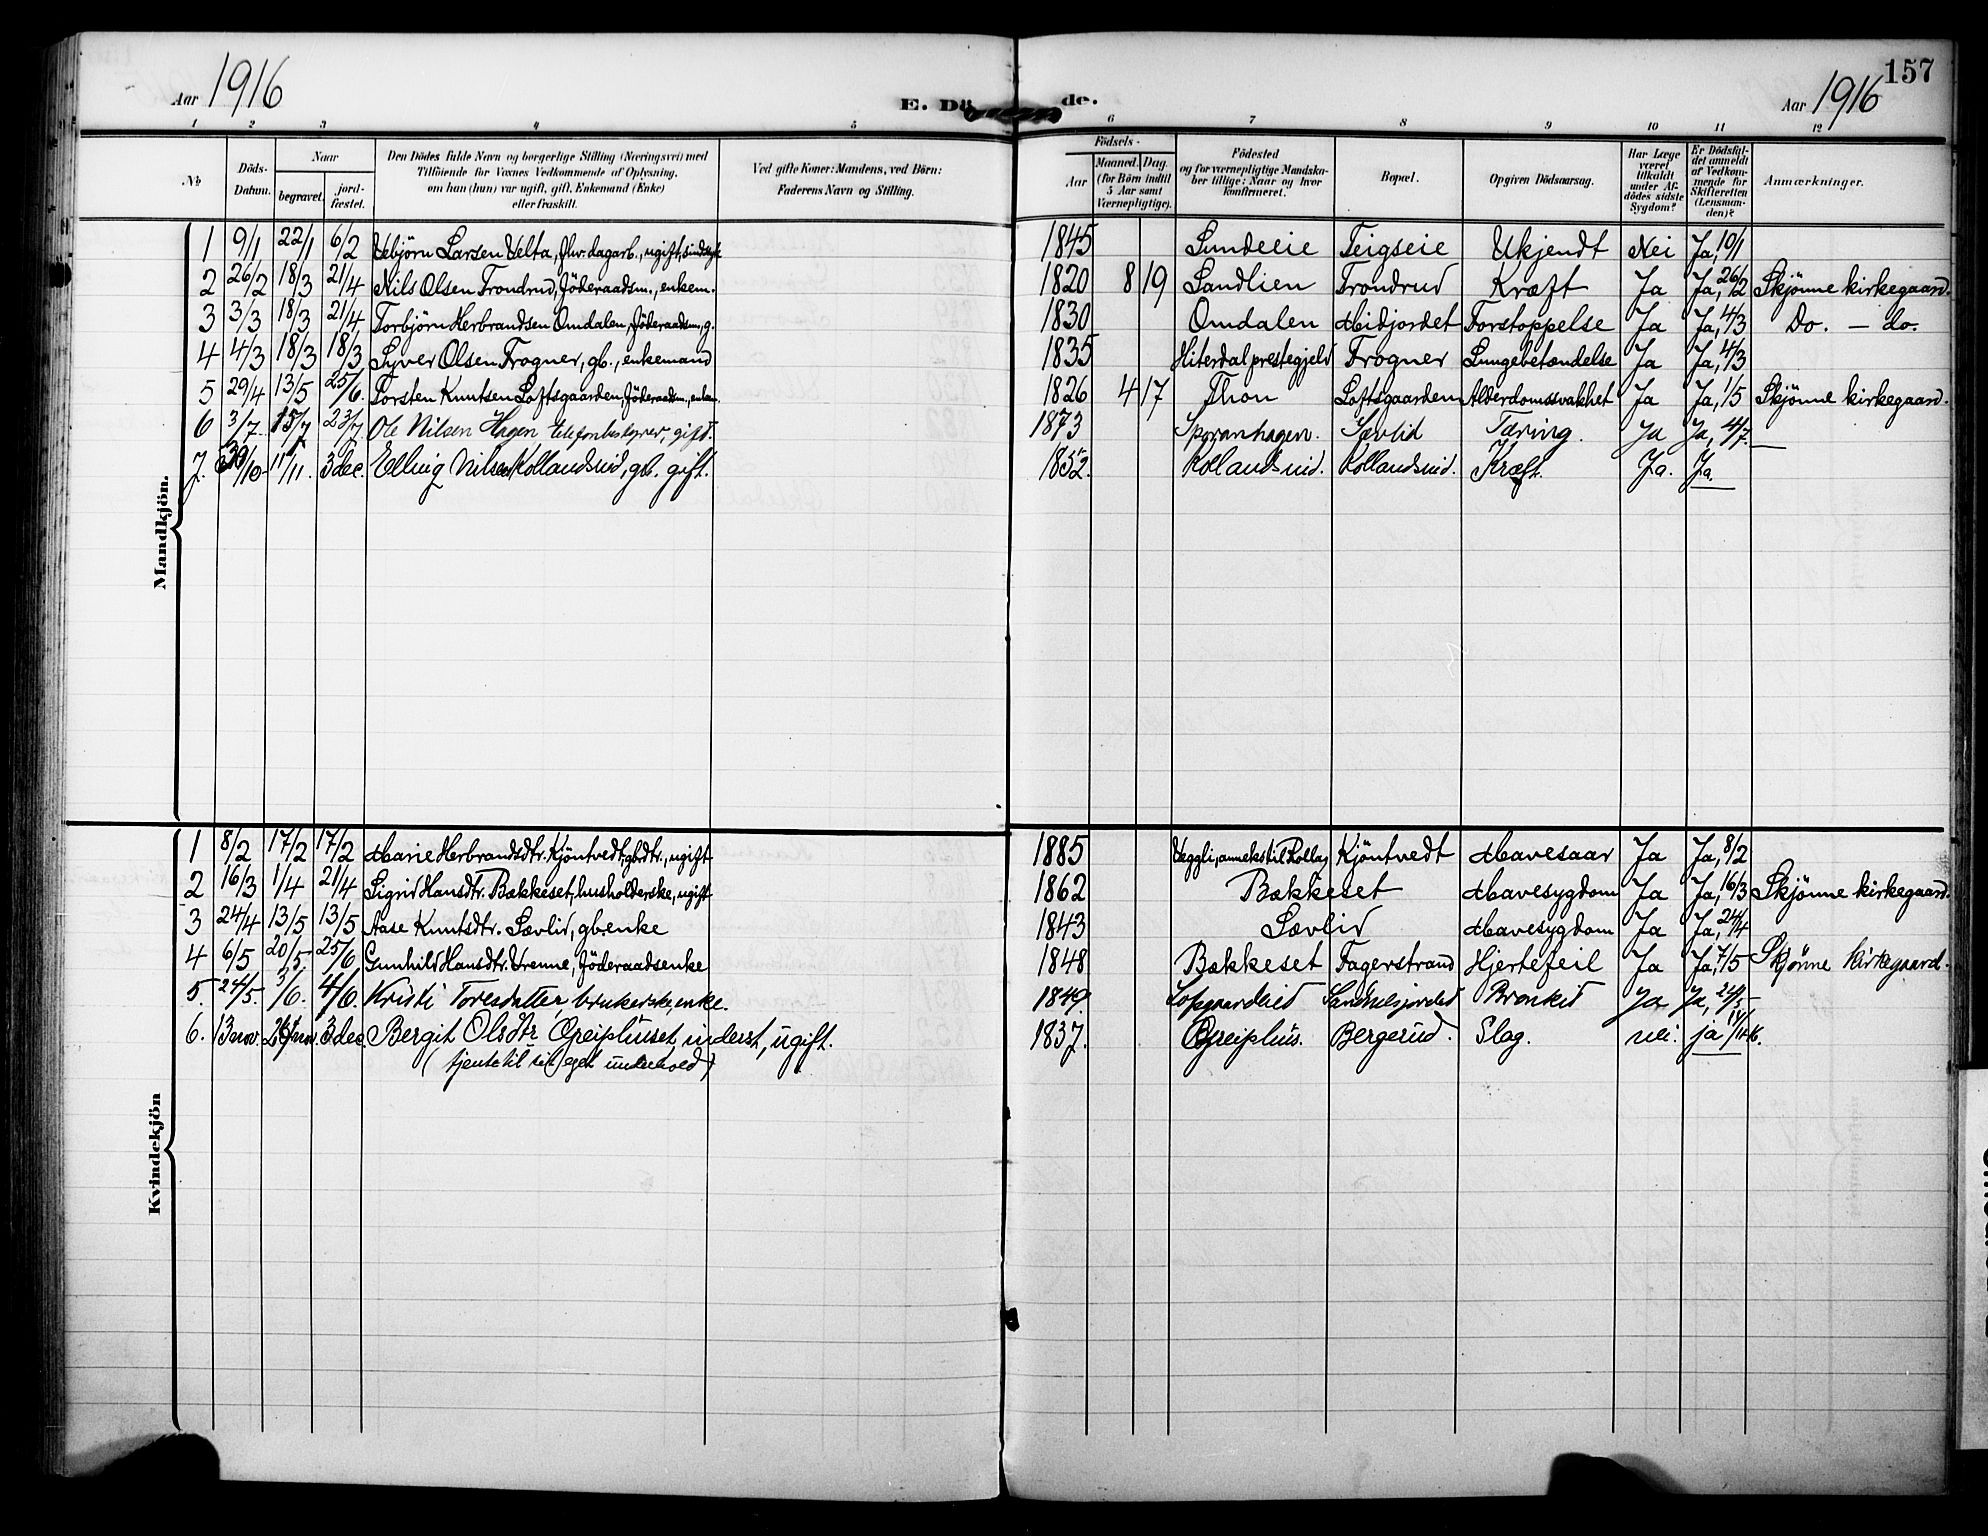 Aar 1916
E. Dö de.
Aar 1916
157
1 2 3 4 5 6 7 8 9 10 11 12
No
Döds-Datum.
Naar begravet. jordfæstet.
Den Dödes fulde Navn og borgerlige Stilling (Næringsvei) med Tilföiende for Voxnes Vedkommende af Oplysning, om han (hun) var ugift, gift, Enkemand (Enke) eller fraskilt.
Ved gifte Koner: Mandens, ved Börn: Faderens Navn og Stilling.
Födsels- Aar Maaned. Dag. (for Börn indtil 5 Aar samt Værnepligtige).
Födested og for værnepligtige Mandskaber tillige: Naar og hvor konfirmeret.
Bopæl.
Opgiven Dödsaarsag.
Har Læge været tilkaldt under Afdödes sidste Sygdom?
Er Dödsfaldet anmeldt af Vedkommende for Skifteretten (Lensmanden)?
Anmærkninger.
Mandkjön.
1 9/1 22/1 6/2 Vebjörn Larsen Velta, fhv. dagarb., ugift, sindssyk 1845 Lundeeie Teigseie Ukjendt Nei Ja, 10/1
2 26/2 18/3 21/4 Nils Olsen Trondrud, föderaadsm., enkem. 1820 8 19 Sandlien Trondrud Kræft Ja Ja, 26/2 Skjønne kirkegaard.
3 3/3 18/3 21/4 Torbjörn Herbrandsen Omdalen, föderaadsm, g. 1830 Omdalen Midjordet Forstoppelse Ja Ja, 4/3 Do. – do.
4 4/3 18/3 18/3 Syver Olsen Frogner, gb., enkemand 1835 Hiterdal prestegjeld Frogner Lungebetændelse Ja Ja, 4/3
5 29/4 13/5 25/6 Torsten Knutsen Loftsgaarden, föderaadsm., enkem. 1826 4 17 Thon Loftsgaarden Alderdomssvakhet Ja Ja, 1/5 Skjønne kirkegaard.
6 3/7 15/7 23/7 Ole Nilsen Hagen telefonbestyrer, gift. 1873 Sporanhagen. Sævlid Tæring. Ja Ja, 4/7.
7. 30/10 11/11. 3 dec. Elling Nilsen Kollandsrud, gb. gift. 1852. Kollandsrud. Kollandsrud. Kræft. Ja. Ja.
Kvindekjön
1 8/2 17/2 17/2 Marie Herbrandsdtr. Kjöntvedt, gbdtr., ugift 1885 Veggli, anneks til Rollag Kjöntvedt Mavesaar Ja Ja, 8/2
2 16/3 1/4 21/4 Sigrid Hansdtr. Bækkeset, husholderske, ugift 1862 Bækkeset Mavesygdom Ja Ja, 16/3 Skjønne kirkegaard.
3 24/4 13/5 13/5 Aase Knutsdtr. Sævlid, gbenke 1843 Sævlid Mavesygdom Ja Ja, 24/4
4 6/5 20/5 25/6 Gunhild Hansdtr. Vrenne, föderaadsenke 1848 Bækkeset Fagerstrand Hjertefeil Ja Ja, 7/5 Skjønne kirkegaard.
5. 24/5. 3/6. 4/6. Kristi Toresdatter, brukerske, enke. 1849. Bronkid Ja Ja, 24/5
6. 13 nov. 26 nov. 3 dec. Bergit Olsdtr Greiphuset, inderst, ugift. 1837. Greiphus. Bergerud. Slag. nei. ja 14/11-16.
(tjente til sit eget underhold)